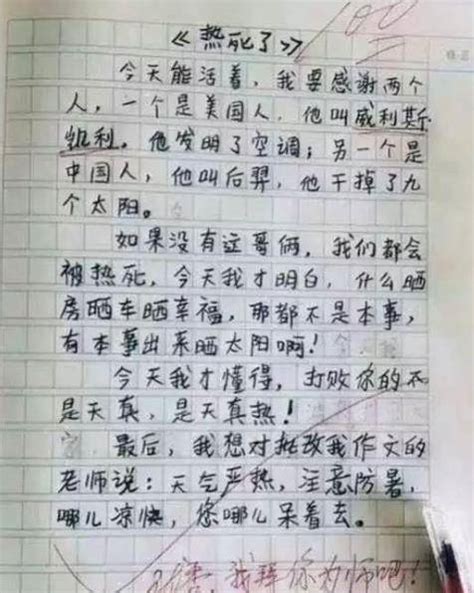 100
《热死了》
今天能活着，我要感谢两个
人，一个是美国人，他叫威利斯
凯利，他发明了空调；另一个是
中国人，他叫后羿，他干掉了九
个太阳。
如果没有这哥俩，我们都会
被热死，今天我才明白，什么晒
房晒车晒幸福，那都不是本事，
有本事出来晒太阳啊！
今天我才懂得，打败你的不
是天真，是天真热！
最后，我想对批改我作文的
老师说：天气严热，注意防暑，
哪儿凉快，您哪儿呆着去。
我拜你为师吧！